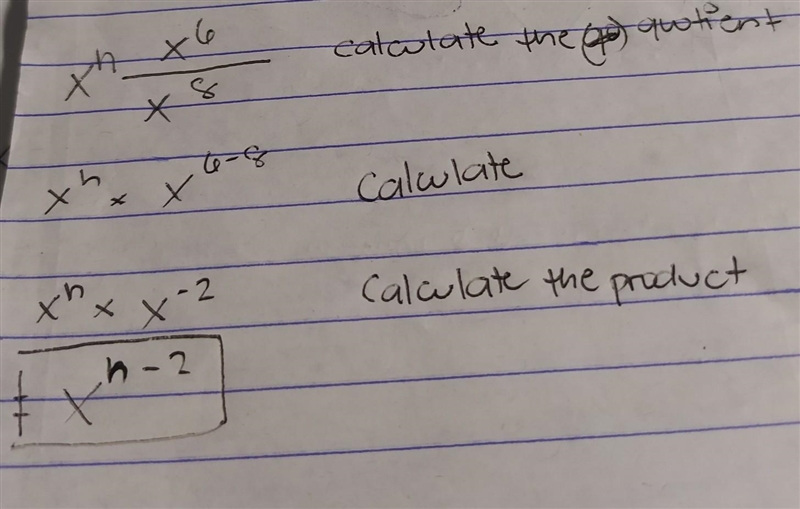 xⁿ x⁶/x⁸ calculate the quotient
xⁿ × x⁶⁻⁸ Calculate
xⁿ × x⁻² Calculate the product
xⁿ⁻²